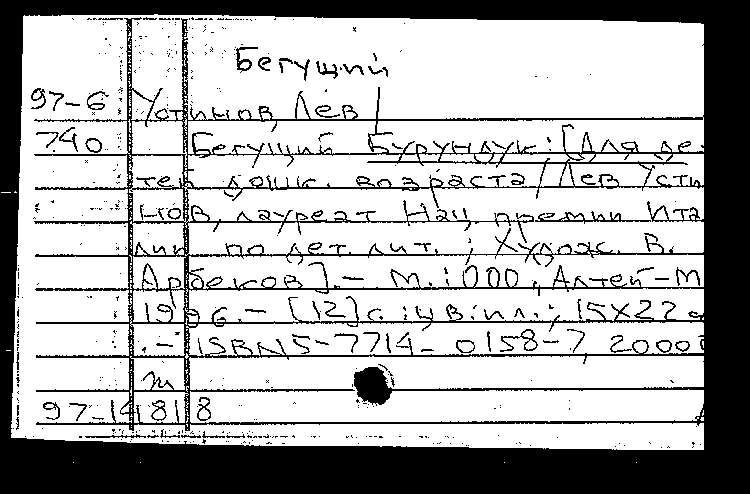 Бегущий
97-6 Устинов, Лев
740 Бегущий Бурундук: [Для де-
тей дошк. возраста / Лев Усти
нов, лауреат Нац. премии Ита
лии по дет. лит. ; Худож. В.
Арбеков]. - М. : ООО "Алтей-М
1996. - [12] с. : цв. ил. ; 15X22 с
. - ISBN 5-7714-0158-7, 20000
m
97-14818